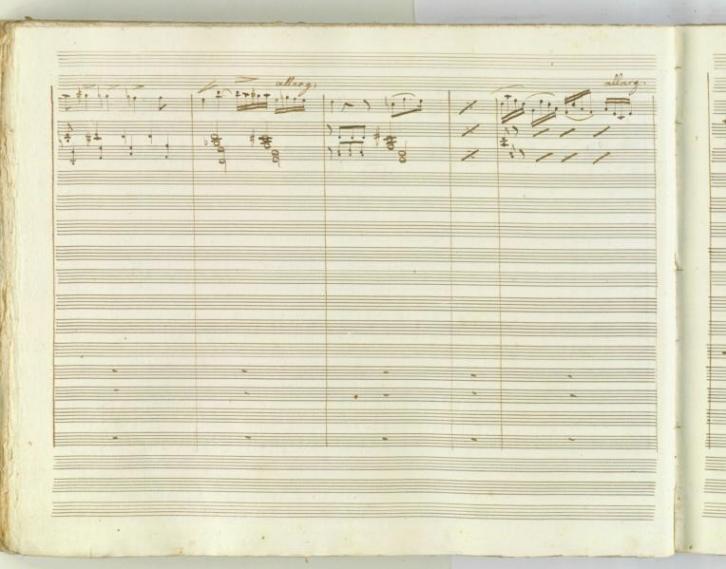 allarg. allarg.